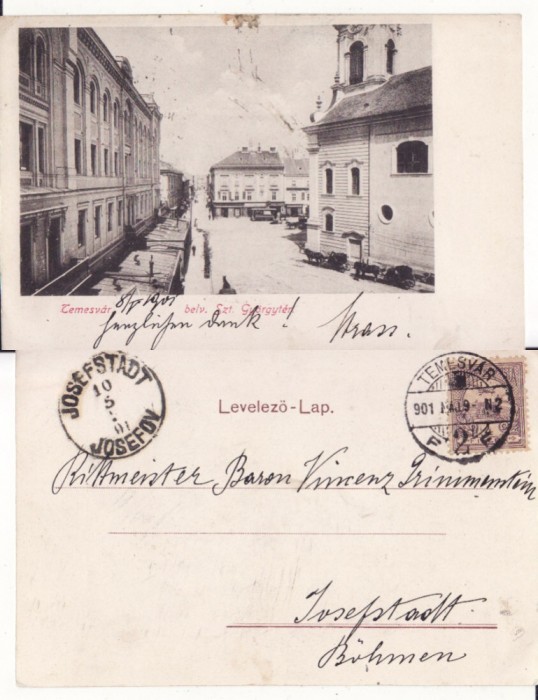 Temesvár belv. Szt. Györgytér.
8/5 1901
herzlichen Dank! Strass.
JOSEFSTADT
10
5
01
JOSEFOV
Levelezö-Lap.
TEMESVÁR
901 MÁJ 9 - N2
Rittmeister Baron Vincenz Grimmenstein
Josefstadt.
Böhmen